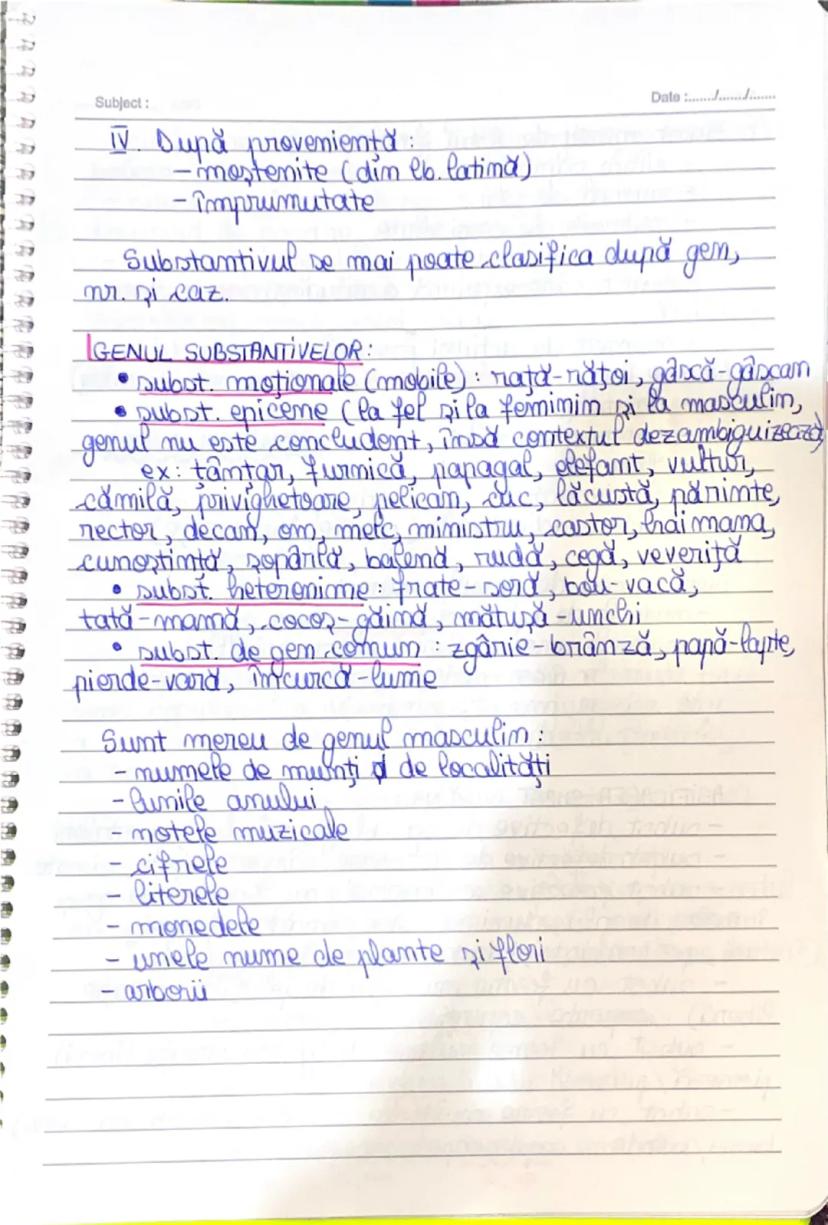 Subject :
Date :....../....../......
IV. După proveniență:
- moștenite (din lb. latină)
- împrumutate
Substantivul se mai poate clasifica după gen,
nr. și caz.
GENUL SUBSTANTIVELOR:
• subst. moționale (mobile): rață-rățoi, gâscă-gâscan
• subst. epicene (la fel și la feminim și la masculin,
genul nu este concludent, însă contextul dezambiguizează)
ex: țânțar, furnică, papagal, elefant, vultur,
cămilă, privighetoare, pelican, cuc, lăcustă, părinte,
rector, decan, om, melc, ministru, castor, trăi mama,
cunoștință, șopârlă, balenă, rudă, cegă, veveriță
• subst. heteronime: frate-soră, bou-vacă,
tată-mamă, cocoș-găină, mătușă-unchi
• subst. de gen comun: zgârie-brânză, papă-lapte,
pierde-vară, încurcă-lume
Sunt mereu de genul masculin:
- numele de munți de localități
- lunile anului
- notele muzicale
- cifrele
- literele
- monedele
- unele nume de plante și flori
- arborii